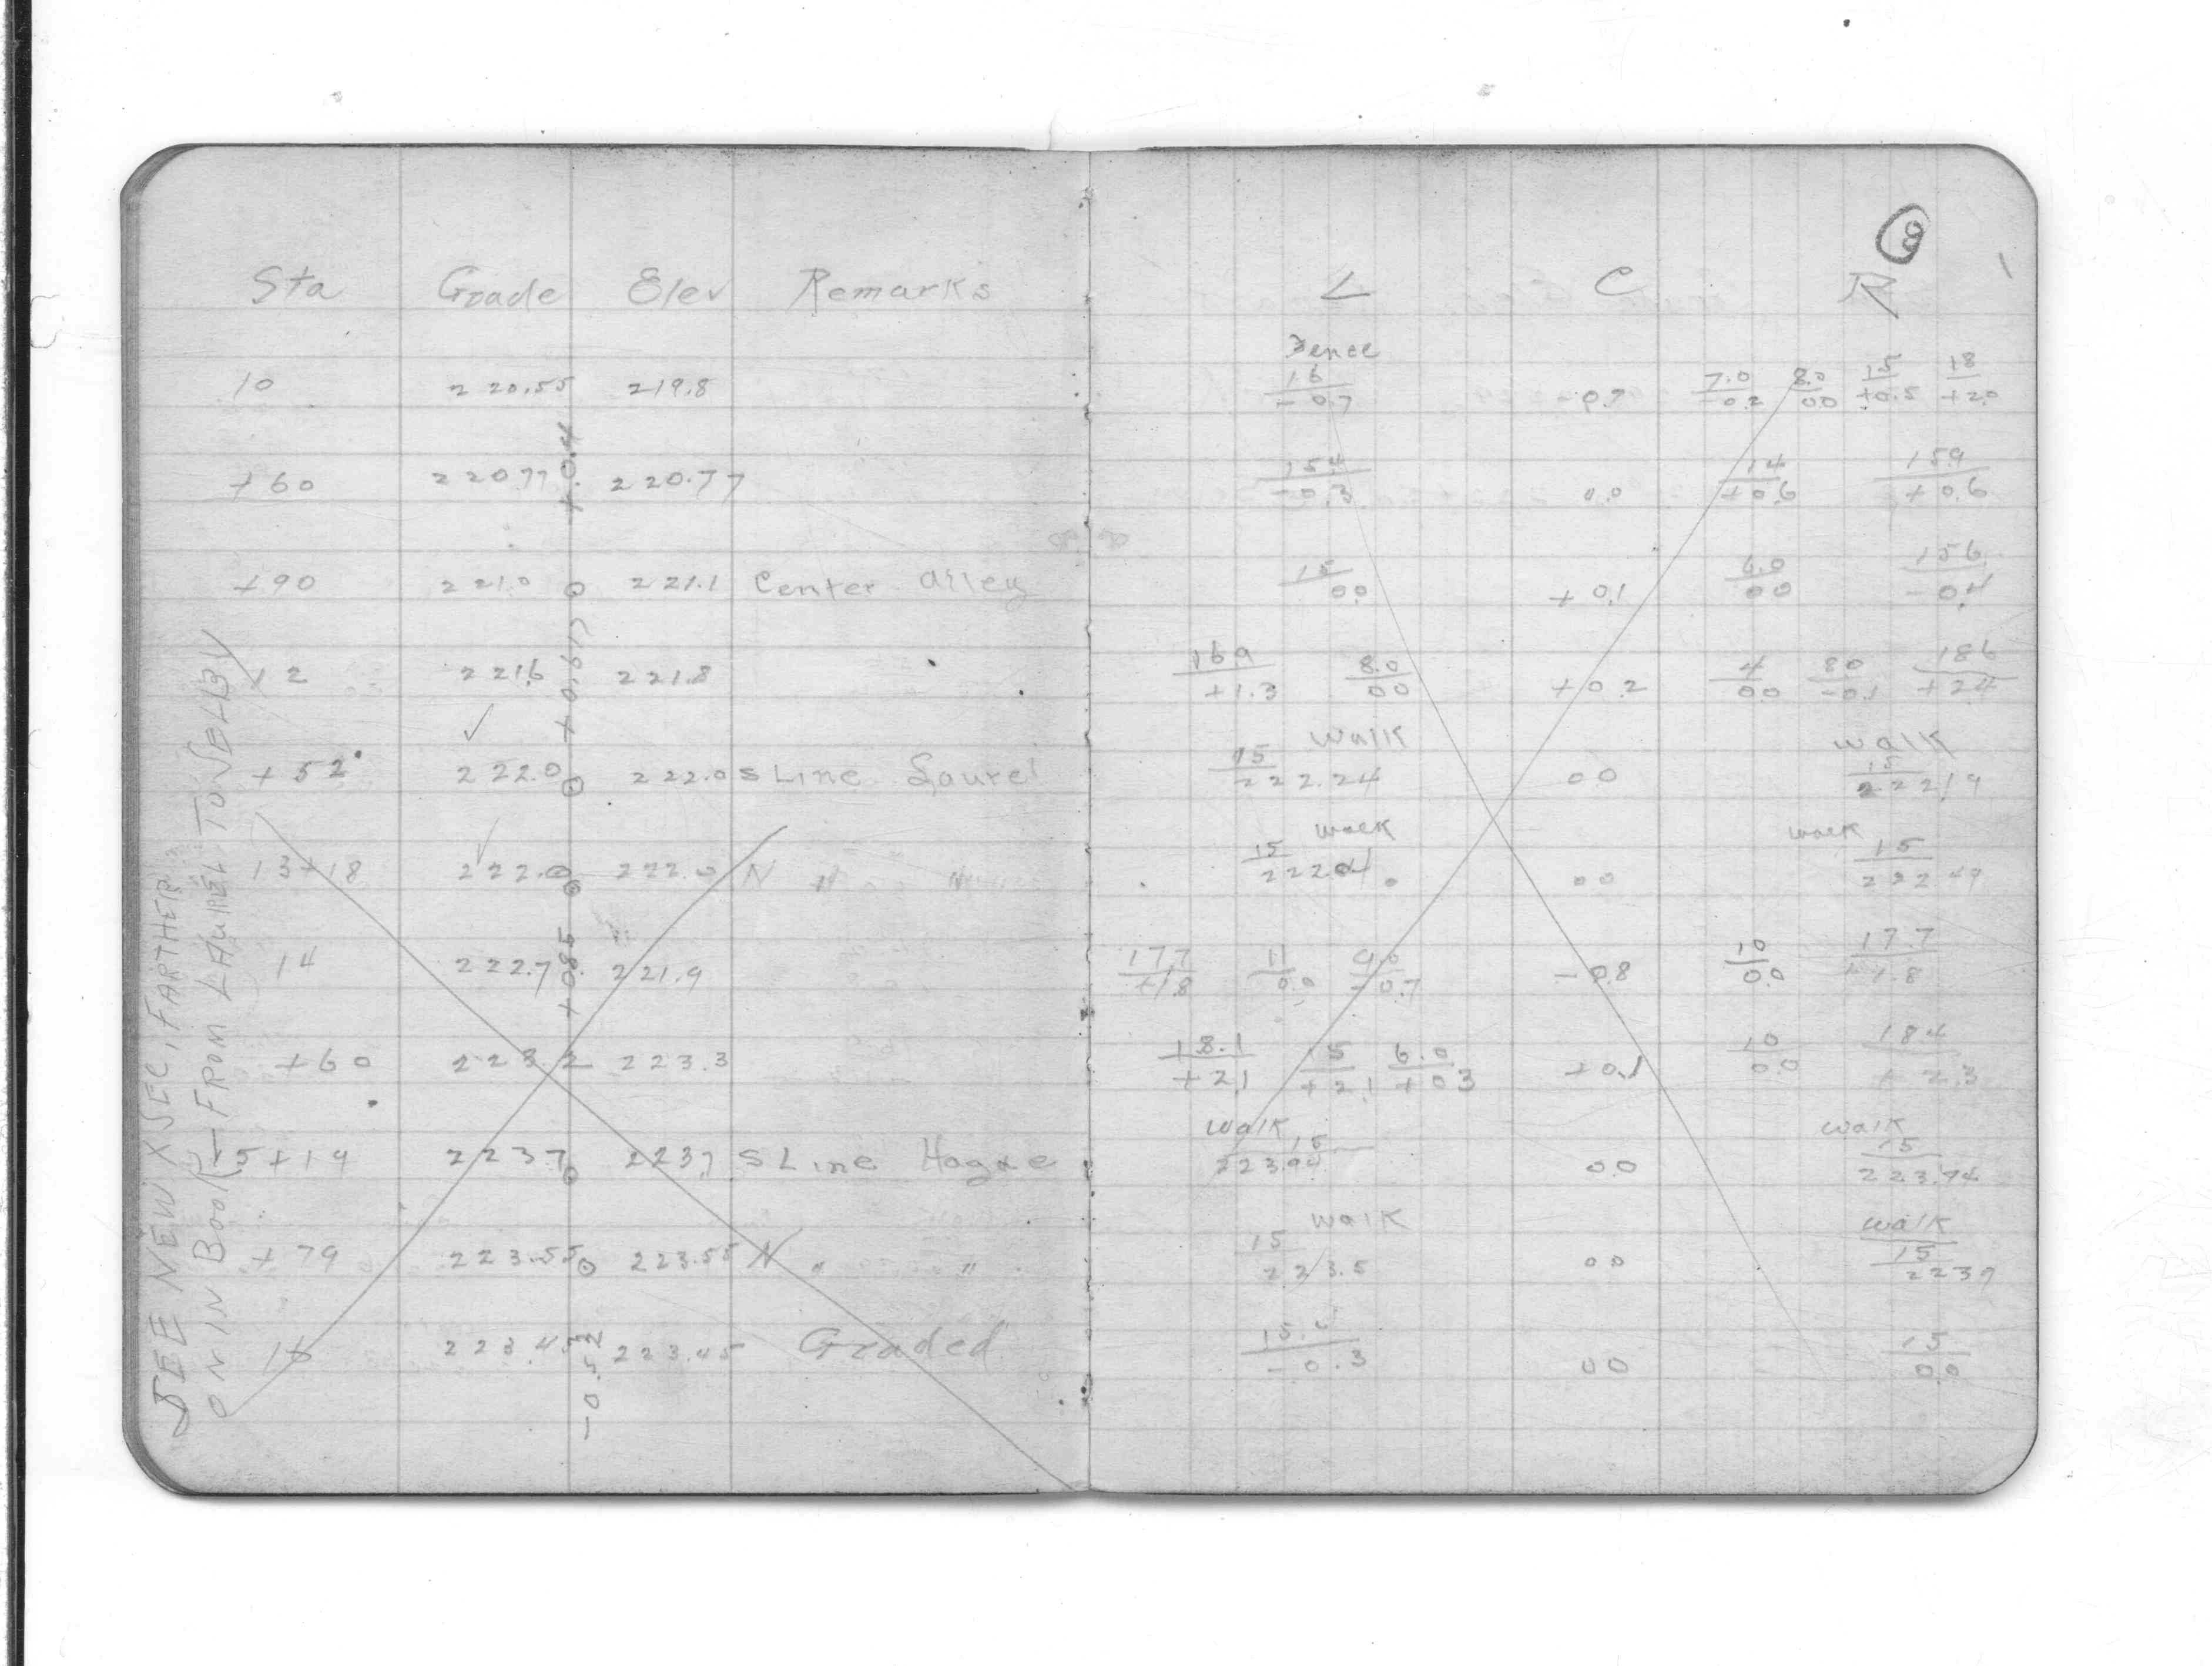 Sta Grade Elev Remarks
10 220.55 219.8
+0.4
+60 220.77 220.77
+90 221.0 221.1 Center Alley
+0.617
12 221.6 221.8
+52 222.0 222.0 S Line Laurel
13+18 222.0 222.0 N " "
+0.85
14 222.7 221.9
+60 223.2 223.3
5+19 223.7 223.7 S Line Hague
+79 223.55 223.55 N " "
16 223.45 223.45 Graded
-0.52
SEE NEW XSEC, FARTHER
ON IN BOOK - FROM LAUREL TO SELBY
8
L C R
Fence
16 7.0 8.0 15 18
-0.7 -0.7 -0.2 0.0 +0.5 +2.0
15.4 14 15.9
-0.3 0.0 +0.6 +0.6
15 6.0 15.6
0.0 +0.1 0.0 -0.4
16.9 8.0 4 8.0 18.6
+1.3 0.0 +0.2 0.0 -0.1 +2.4
walk walk
15 15
222.24 0.0 222.19
walk walk
15 15
222.04 0.0 222.49
17.7 11 10 17.7
+1.8 0.0 -0.7 -0.8 0.0 +1.8
18.1 15 6.0 10 18.4
+2.1 +2.1 +0.3 +0.1 0.0 +2.3
walk walk
15 15
223.94 0.0 223.94
walk walk
15 15
223.5 0.0 223.9
15
-0.3 0.0 0.0